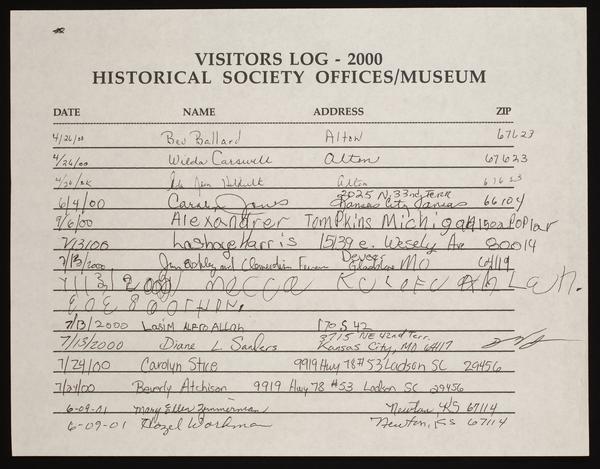 VISITORS LOG - 2000
HISTORICAL SOCIETY OFFICES/MUSEUM
DATE NAME ADDRESS ZIP
4/26/00 Bev Ballard Alton 67623
4/26/00 Wilda Carswell Alton 67623
Alton 67623
3025 N. 33rd Terr
6/4/00 Carolyn Jones Kansas City, Kansas 66104
9/6/00 Alexandrer Tompkins Michigan Poplar
7/13/00 15139 e. Wesely Ave 80014
7/13/2000 Jim Ashley and Clementine Denver Gladstone MO 64119
7/13/2000 mecca
7/13/2000 Lasim 170 S 42
3715 NE 42nd Terr.
7/15/2000 Diane L Sanders Kansas City, MO 64117
7/24/00 Carolyn Stice 9919 Hwy 78 #53 Ladson SC 29456
7/24/00 Beverly Atchison 9919 Hwy 78 #53 Ladson SC 29456
6-09-01 Mary Ellen Zimmerman Newton, KS 67114
6-09-01 Hazel Workman Newton, KS 67114